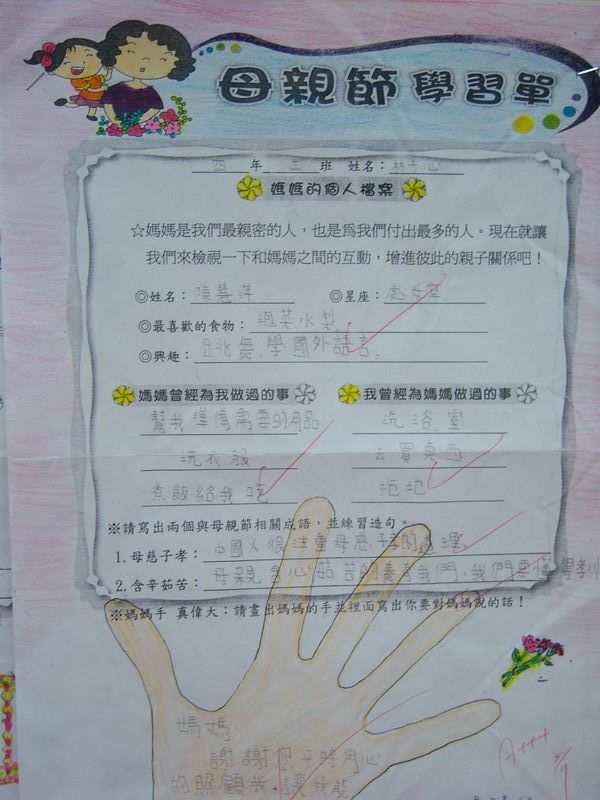 母親節學習單
四 年 三 班 姓名：林子心
媽媽的個人檔案
☆媽媽是我們最親密的人，也是為我們付出最多的人。現在就讓
我們來檢視一下和媽媽之間的互動，增進彼此的親子關係吧！
◎姓名：陳慧萍 ◎星座：處女座
◎最喜歡的食物：泡菜、水梨。
◎興趣：跳舞、學國外語言。
媽媽曾經為我做過的事 我曾經為媽媽做過的事
幫我準備需要的用品 洗浴室
洗衣服 去買東西
煮飯給我吃 拖地
※請寫出兩個與母親節相關成語，並練習造句。
1.母慈子孝：中國人很注重母慈子孝的道理。
2.含辛茹苦：母親含心茹苦的養育我們，我們要懂得孝順
※媽媽手 真偉大：請畫出媽媽的手並裡面寫出你要對媽媽說的話！
媽媽
謝謝您平時用心
的照顧我，讓我能
A+++
5/9